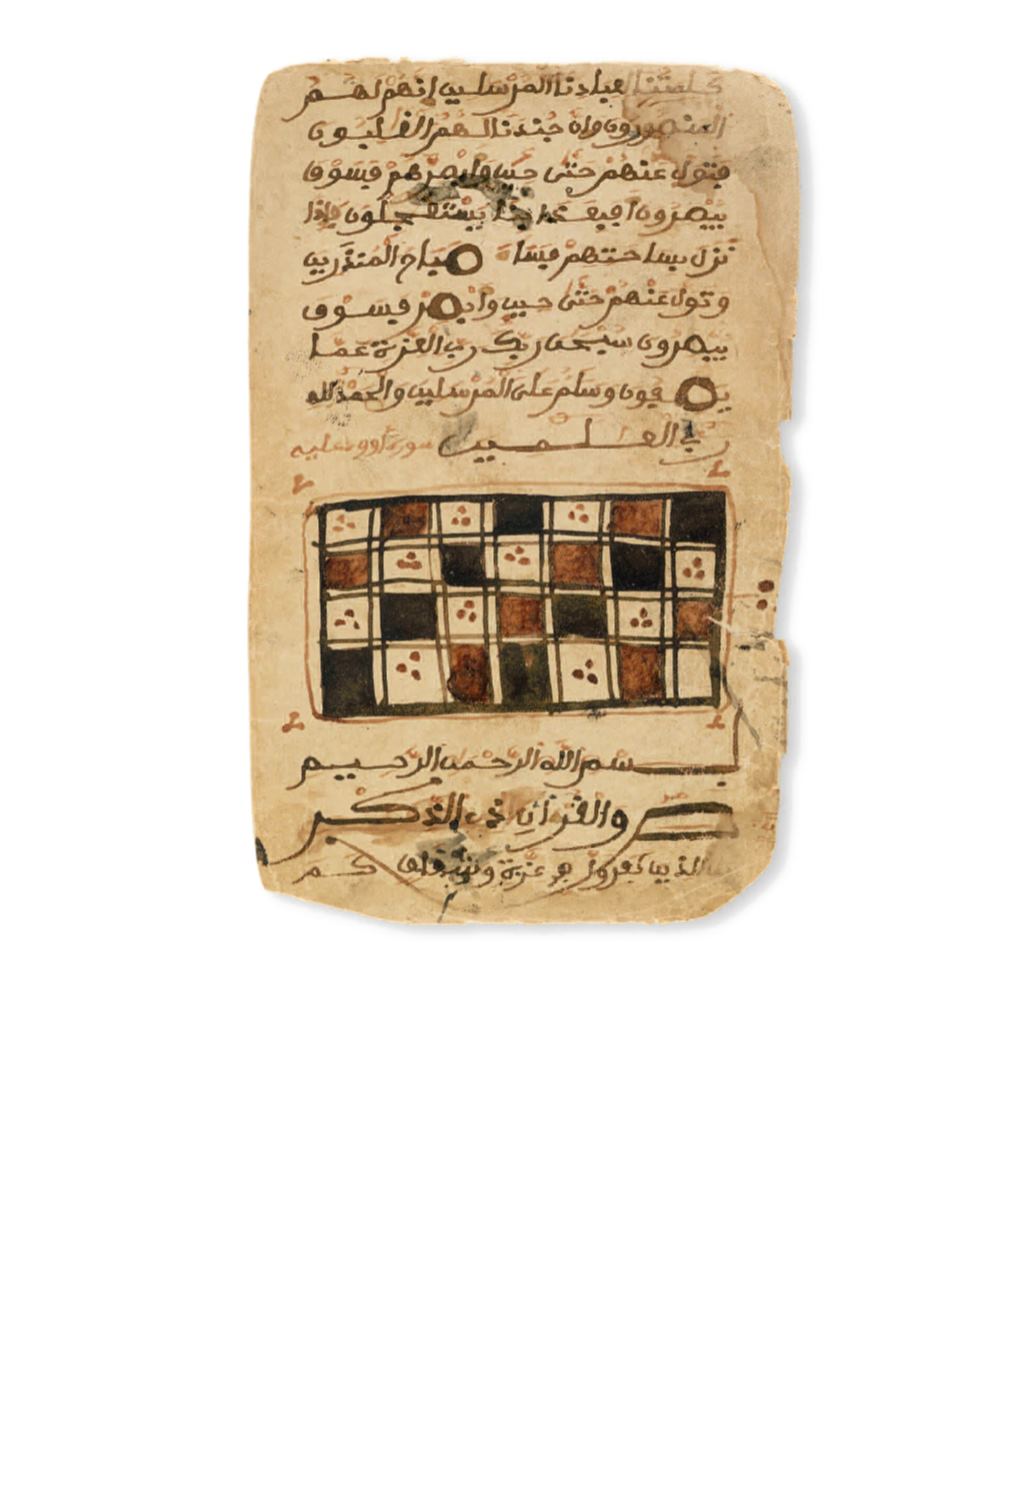 كلمتنا لعبادنا المرسلين إنهم لهم
المنصورون وإن جندنا لهم الغلبون
فتول عنهم حتى حين وأبصرهم فسوف
يبصرون أفبعذابنا يستعجلون فإذا
نزل بساحتهم فساء صباح المنذرين
وتول عنهم حتى حين وأبصر فسوف
يبصرون سبحن ربك رب العزة عما
يصفون وسلم على المرسلين والحمد لله
رب العلمين سورة داوود عليه
بسم الله الرحمن الرحيم
ص والقرآن ذي الذكر
بل الذين كفروا في عزة وشقاق كم